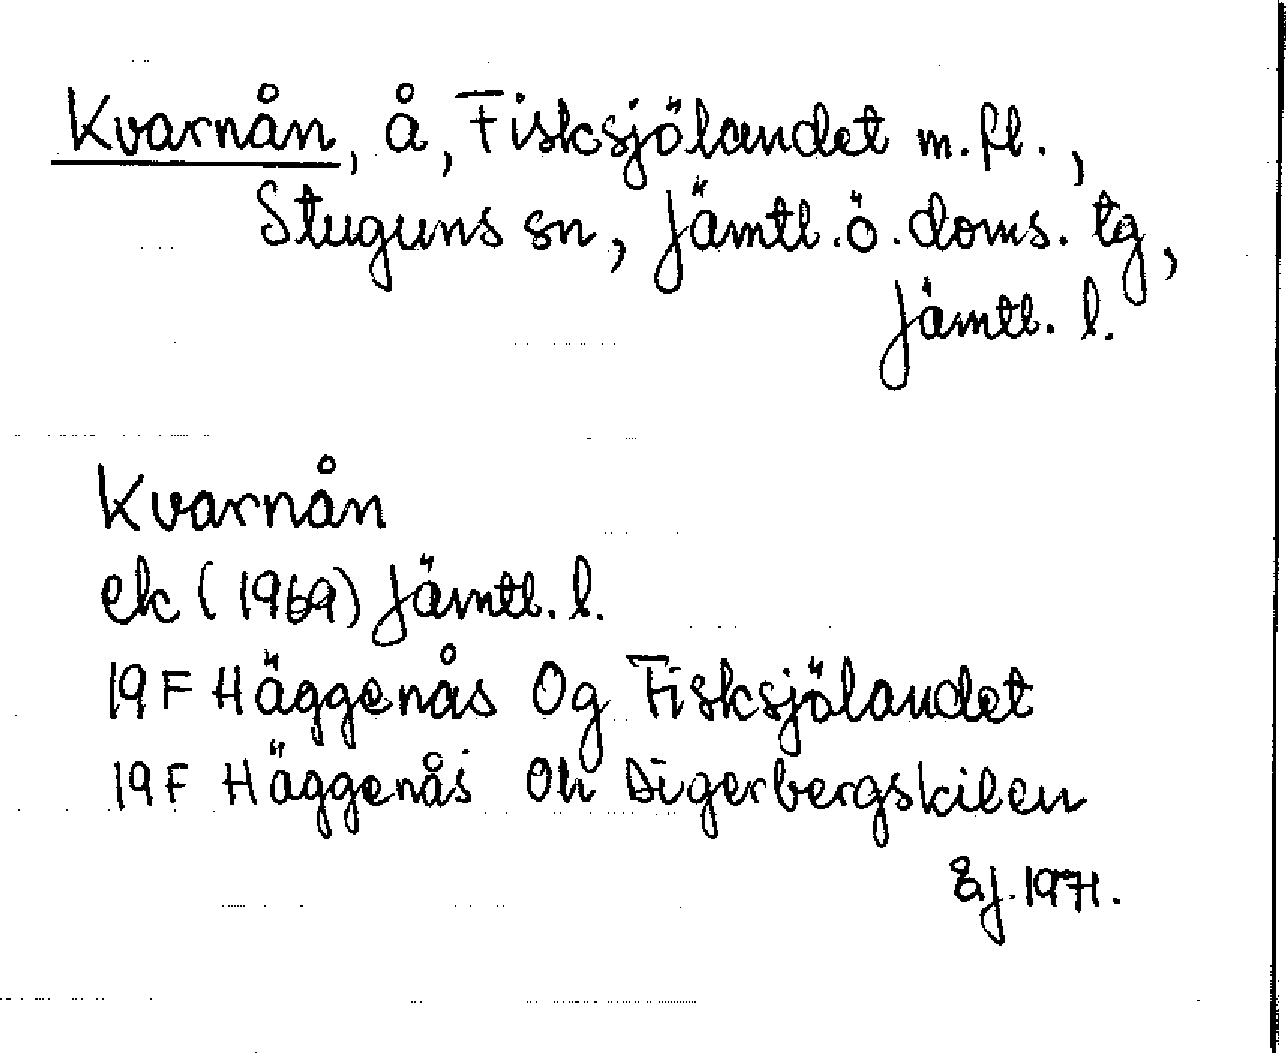 Kvarnån, å, Fisksjölandet m.fl.,
Stuguns sn, Jämtl.ö.doms.tg,
Jämtl. l.
Kvarnån
ek (1969) Jämtl. l.
19F Häggenås Og Fisksjölandet
19F Häggenås Oh Digerbergskilen
EJ. 1971.